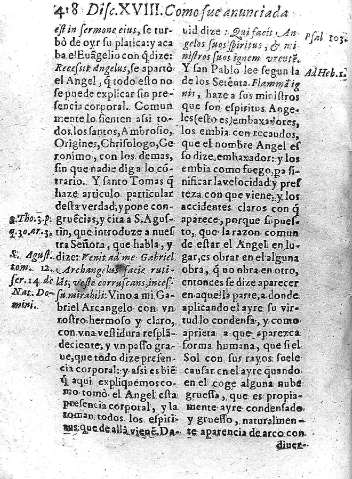 418 Disc. XVIII. Como fue anunciada
est in sermone eius, se tur-
bò de oyr su platica: y aca
ba el Euãgelio con q̃ dize:
Recessit Angelus, se apartò
el Angel, q̃ todo esto no
se puede explicar sin pre-
sencia corporal. Comun
mente lo sienten assi to-
dos los santos, Ambrosio,
Origines, Chrisologo, Ge-
ronimo, con los demas,
sin que nadie diga lo cõ-
trario. Y santo Tomas q̃
haze articulo particular
desta verdad, y pone con-
gruẽcias, y cita a S. Agus-
tin, que introduze a nues-
tra Señora, que habla, y
dize: Venit ad me Gabriel
Archangelus facie ruti-
lãs, veste corruscans, inces-
su mirabilis. Vino a mi Ga-
briel Arcangelo con vn
rostro hermoso y claro,
con vna vestidura respla-
deciente, y vn passo gra-
ue, que todo dize presen-
cia corporal: y assi es biẽ
q̃ aqui expliquemos co-
mo tomò el Angel esta
presencia corporal, y la
toman todos los espiri-
tus que de allà vienẽ. Da-
g. Tho. 3. p.
q. 30. ar. 3.
S. Agust.
tom. 12.
ser. 14. de
Nat. Do-
mini.
uid dize: Qui facis An-
gelos suos spiritus, & mi-
nistros suos ignem vrentẽ.
Y san Pablo lee segun la
de los Setenta. Flammã ig-
nis, haze a sus ministros
que son espiritus Ange-
les (esto es) embaxadores,
los embia con recaudos,
que el nombre Angel es-
so dize, embaxador: y los
embia como fuego, pa si-
nificar la velocidad y pres
teza con que vienẽ, y los
accidentes claros con q̃
aparecè, porque supues-
to, que la razon comun
de estar el Angel en lu-
gar, es obrar en el alguna
obra, q̃ no obra en otro,
entonces se dize aparecer
en aquella parte, a donde
aplicando el ayre su vir-
tud lo condensa, y como
aprieta a que aparezca
forma humana, que si el
Sol con sus rayos suele
causar en el ayre quando
en el coge alguna nube
gruessa, que es propia-
mente ayre condensado
y gruesso, naturalmen-
te aparencia de arco con
diuer-
Psal 103.
Ad Heb. 1.